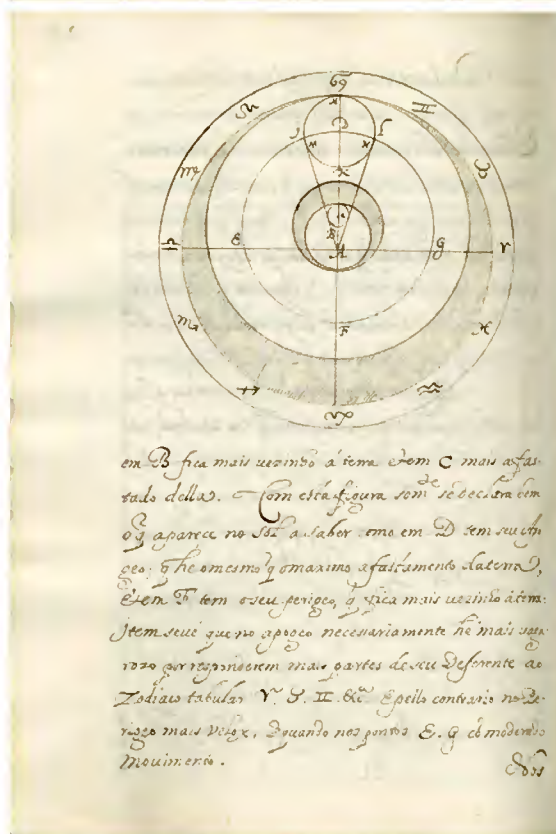 ♋
♌ ♊
♍ ♉
D
X
E B G
♎ A ♈
F
♏ ♓
♐ ♒
♑
em B fica mais uezinho á terra e em C mais afas-
tado della. Com esta figura som.te se declara bem
o q̃ aparece no Sol a saber como em D tem seu Apo
geo; q̃ he o mesmo q̃ o maximo afastamento da terra,
e em F tem o seu perigeo, q̃ fica mais uezinho á terra.
Item se ué que no apogeo necessariamente hé mais uaga
rozo por responderem mais partes de seu Deferente ao
Zodiaco tabular ♈. ♉. ♊. &c.ª E pello contrario no Pe
rigeo mais velox, E quando nos pontos E. G cõ moderado
movimento.